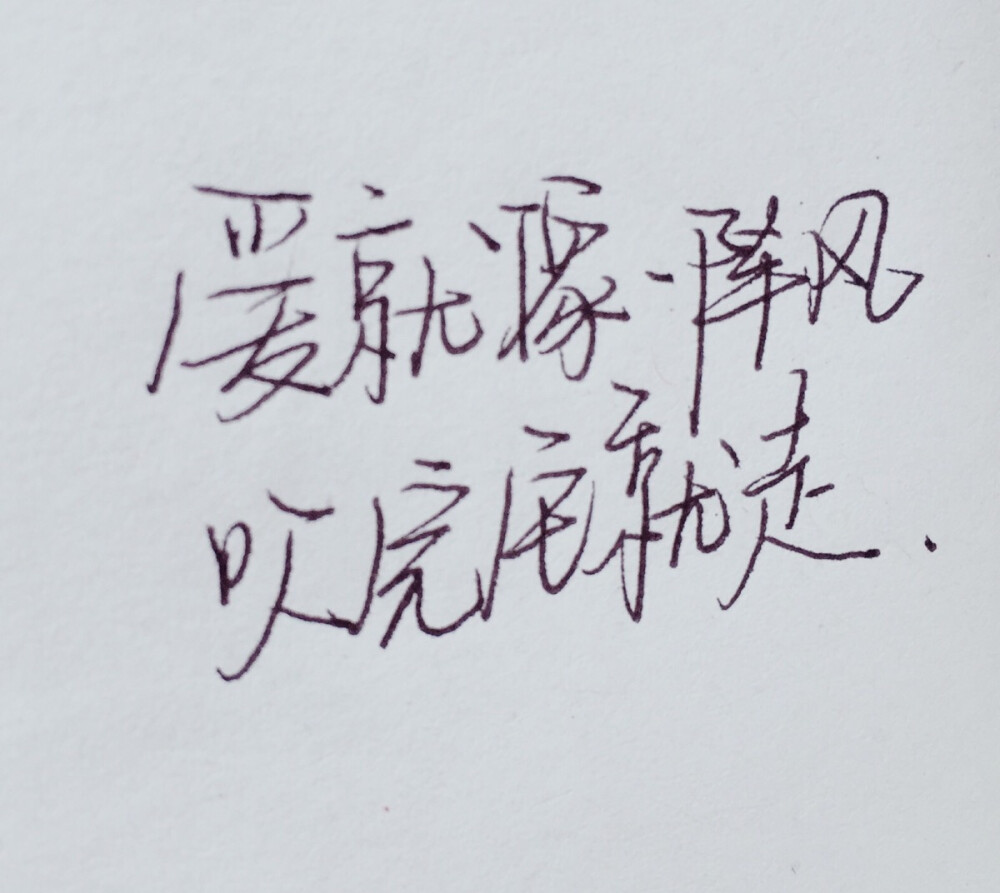 爱就像一阵风
吹完它就走.